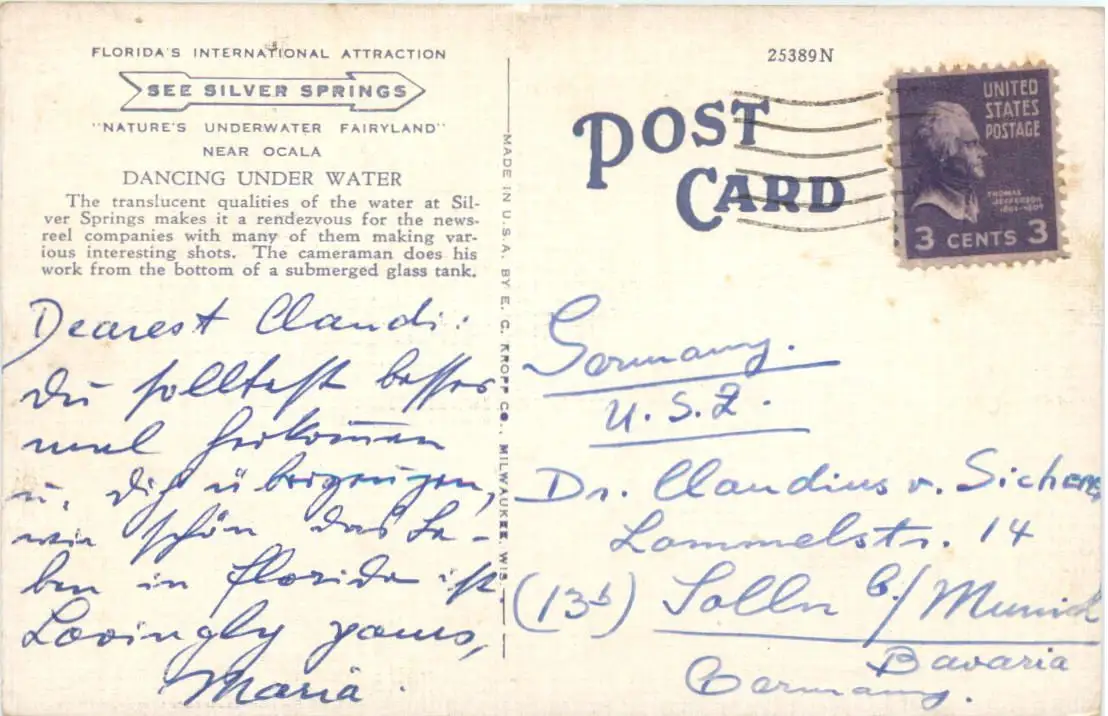 FLORIDA'S INTERNATIONAL ATTRACTION
SEE SILVER SPRINGS
"NATURE'S UNDERWATER FAIRYLAND"
NEAR OCALA
DANCING UNDER WATER
The translucent qualities of the water at Sil-
ver Springs makes it a rendezvous for the news-
reel companies with many of them making var-
ious interesting shots. The cameraman does his
work from the bottom of a submerged glass tank.
Dearest Claudi:
Du solltest besser
mal herkommen
u. Dich überzeugen,
wie schön das Le-
ben in Florida ist
Lovingly yours,
Maria.
MADE IN U.S.A. BY E. C. KROPP CO., MILWAUKEE, WIS.
25389N
POST
CARD
UNITED
STATES
POSTAGE
THOMAS
JEFFERSON
1801-1809
3 CENTS 3
Germany.
U.S.Z.
Dr. Claudius v. Sicherer
Lommelstr. 14
(13b) Solln b./Munich
Bavaria
Germany.